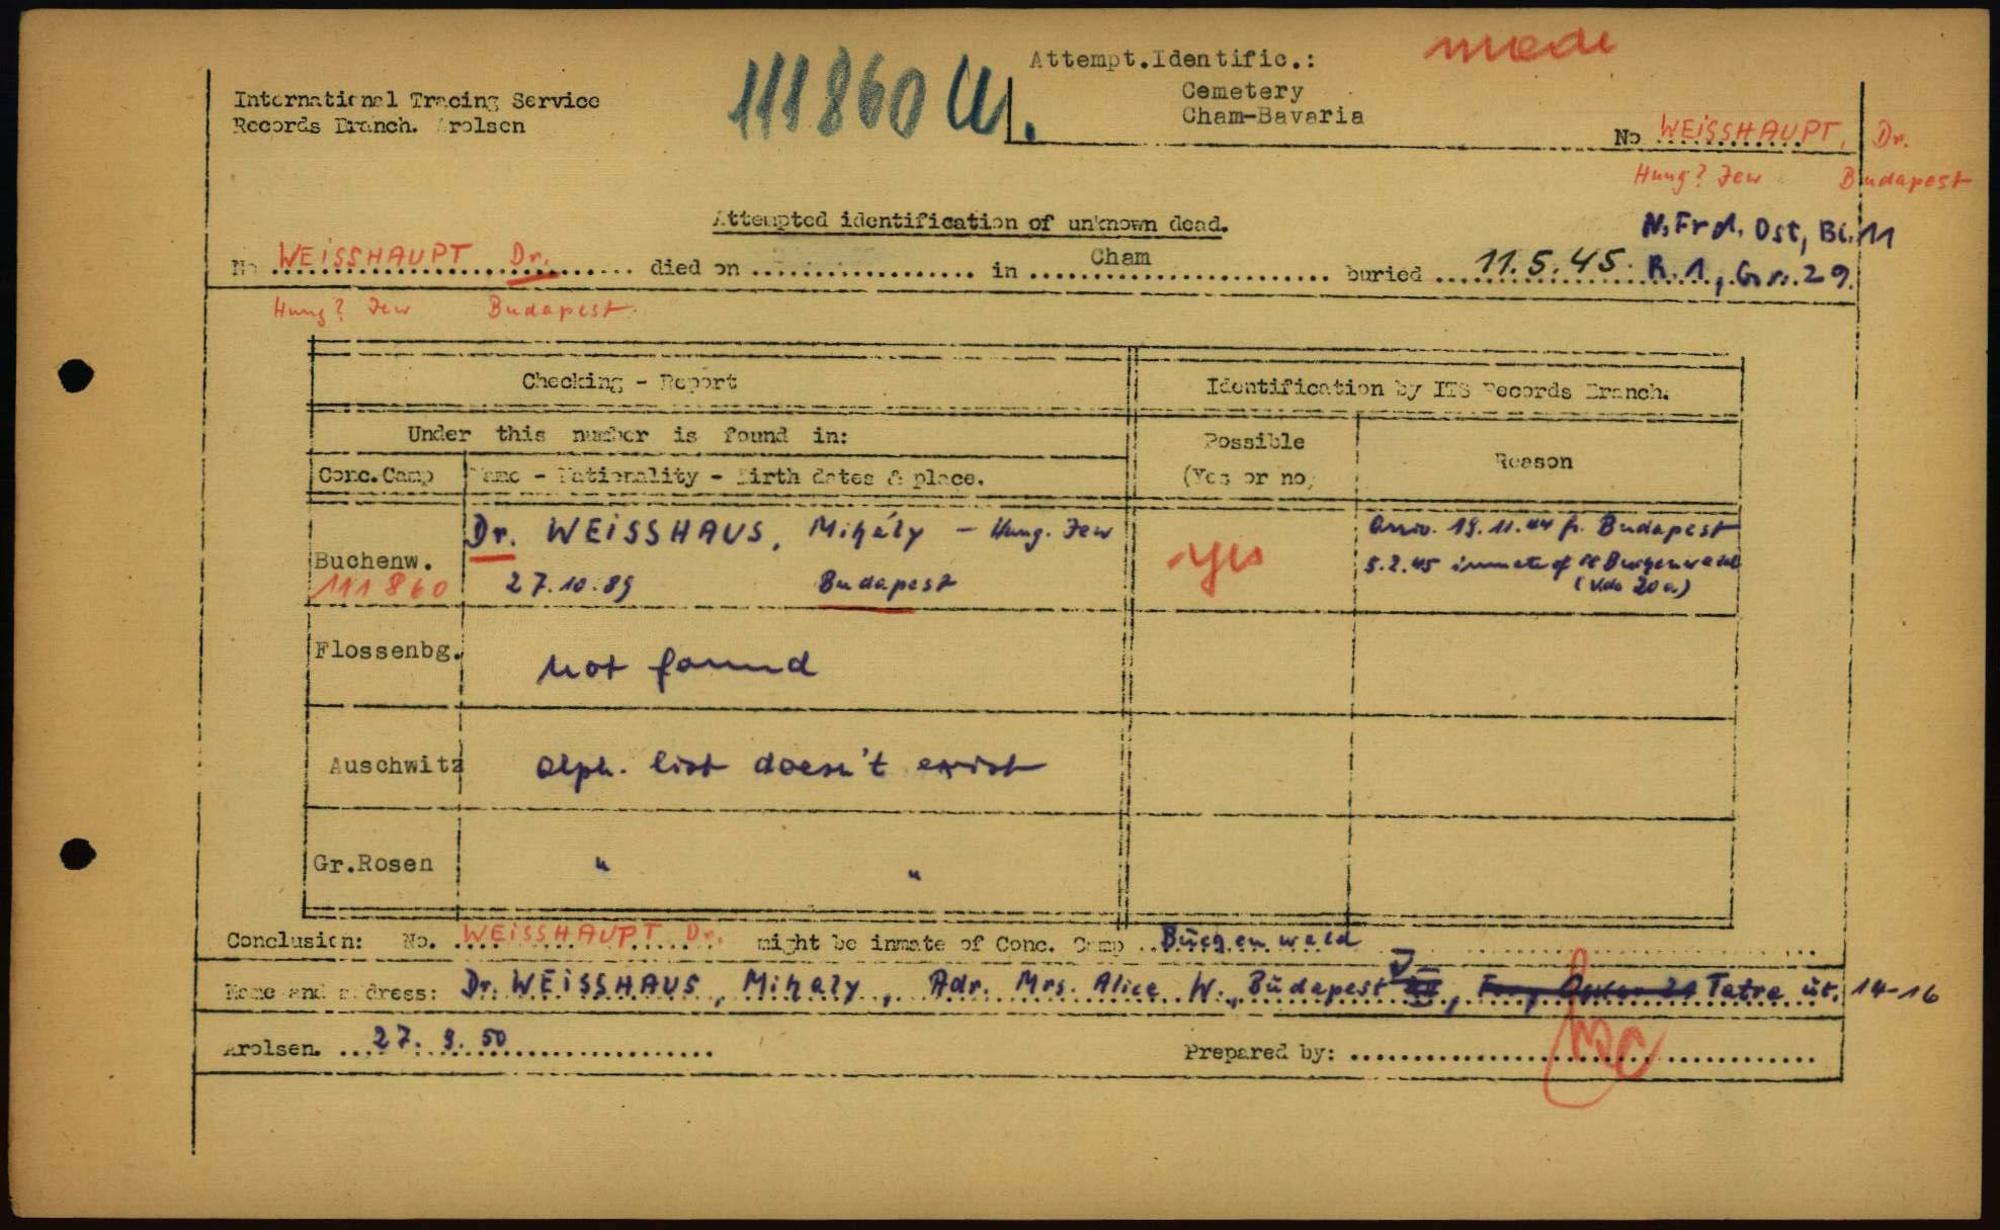 111860 U.
Attempt.Identific.:
Cemetery
Cham-Bavaria
International Tracing Service
Records Branch. Arolsen
No WEISSHAUPT, Dr.
Hung? Jew Budapest
Attempted identification of unknown dead.
N.Frd. Ost, Bl. 11
No WEISSHAUPT Dr. died on .......... in Cham buried 11.5.45. R.1, Gr. 29.
Hung? Jew Budapest.
Checking - Report
Identification by ITS Records Branch.
Under this number is found in:
Possible
(Yes or no)
Reason
Conc.Camp
Name - Nationality - Birth dates & place.
Buchenw.
111860
Dr. WEISSHAUS, Mihály - Hung. Jew
27.10.89 Budapest
yes
Arriv. 19.11.44 fr. Budapest
5.2.45 inmate of
Flossenbg.
not found
Auschwitz
alph. list doesn't exist
Gr.Rosen
" "
Conclusion: No. WEISSHAUPT Dr. might be inmate of Conc. Camp Buchenwald
Name and address: Dr. WEISSHAUS, Mihaly, Adr. Mrs. Alice W., Budapest V, Tatra út. 14-16
Arolsen. 27. 9. 50
Prepared by: